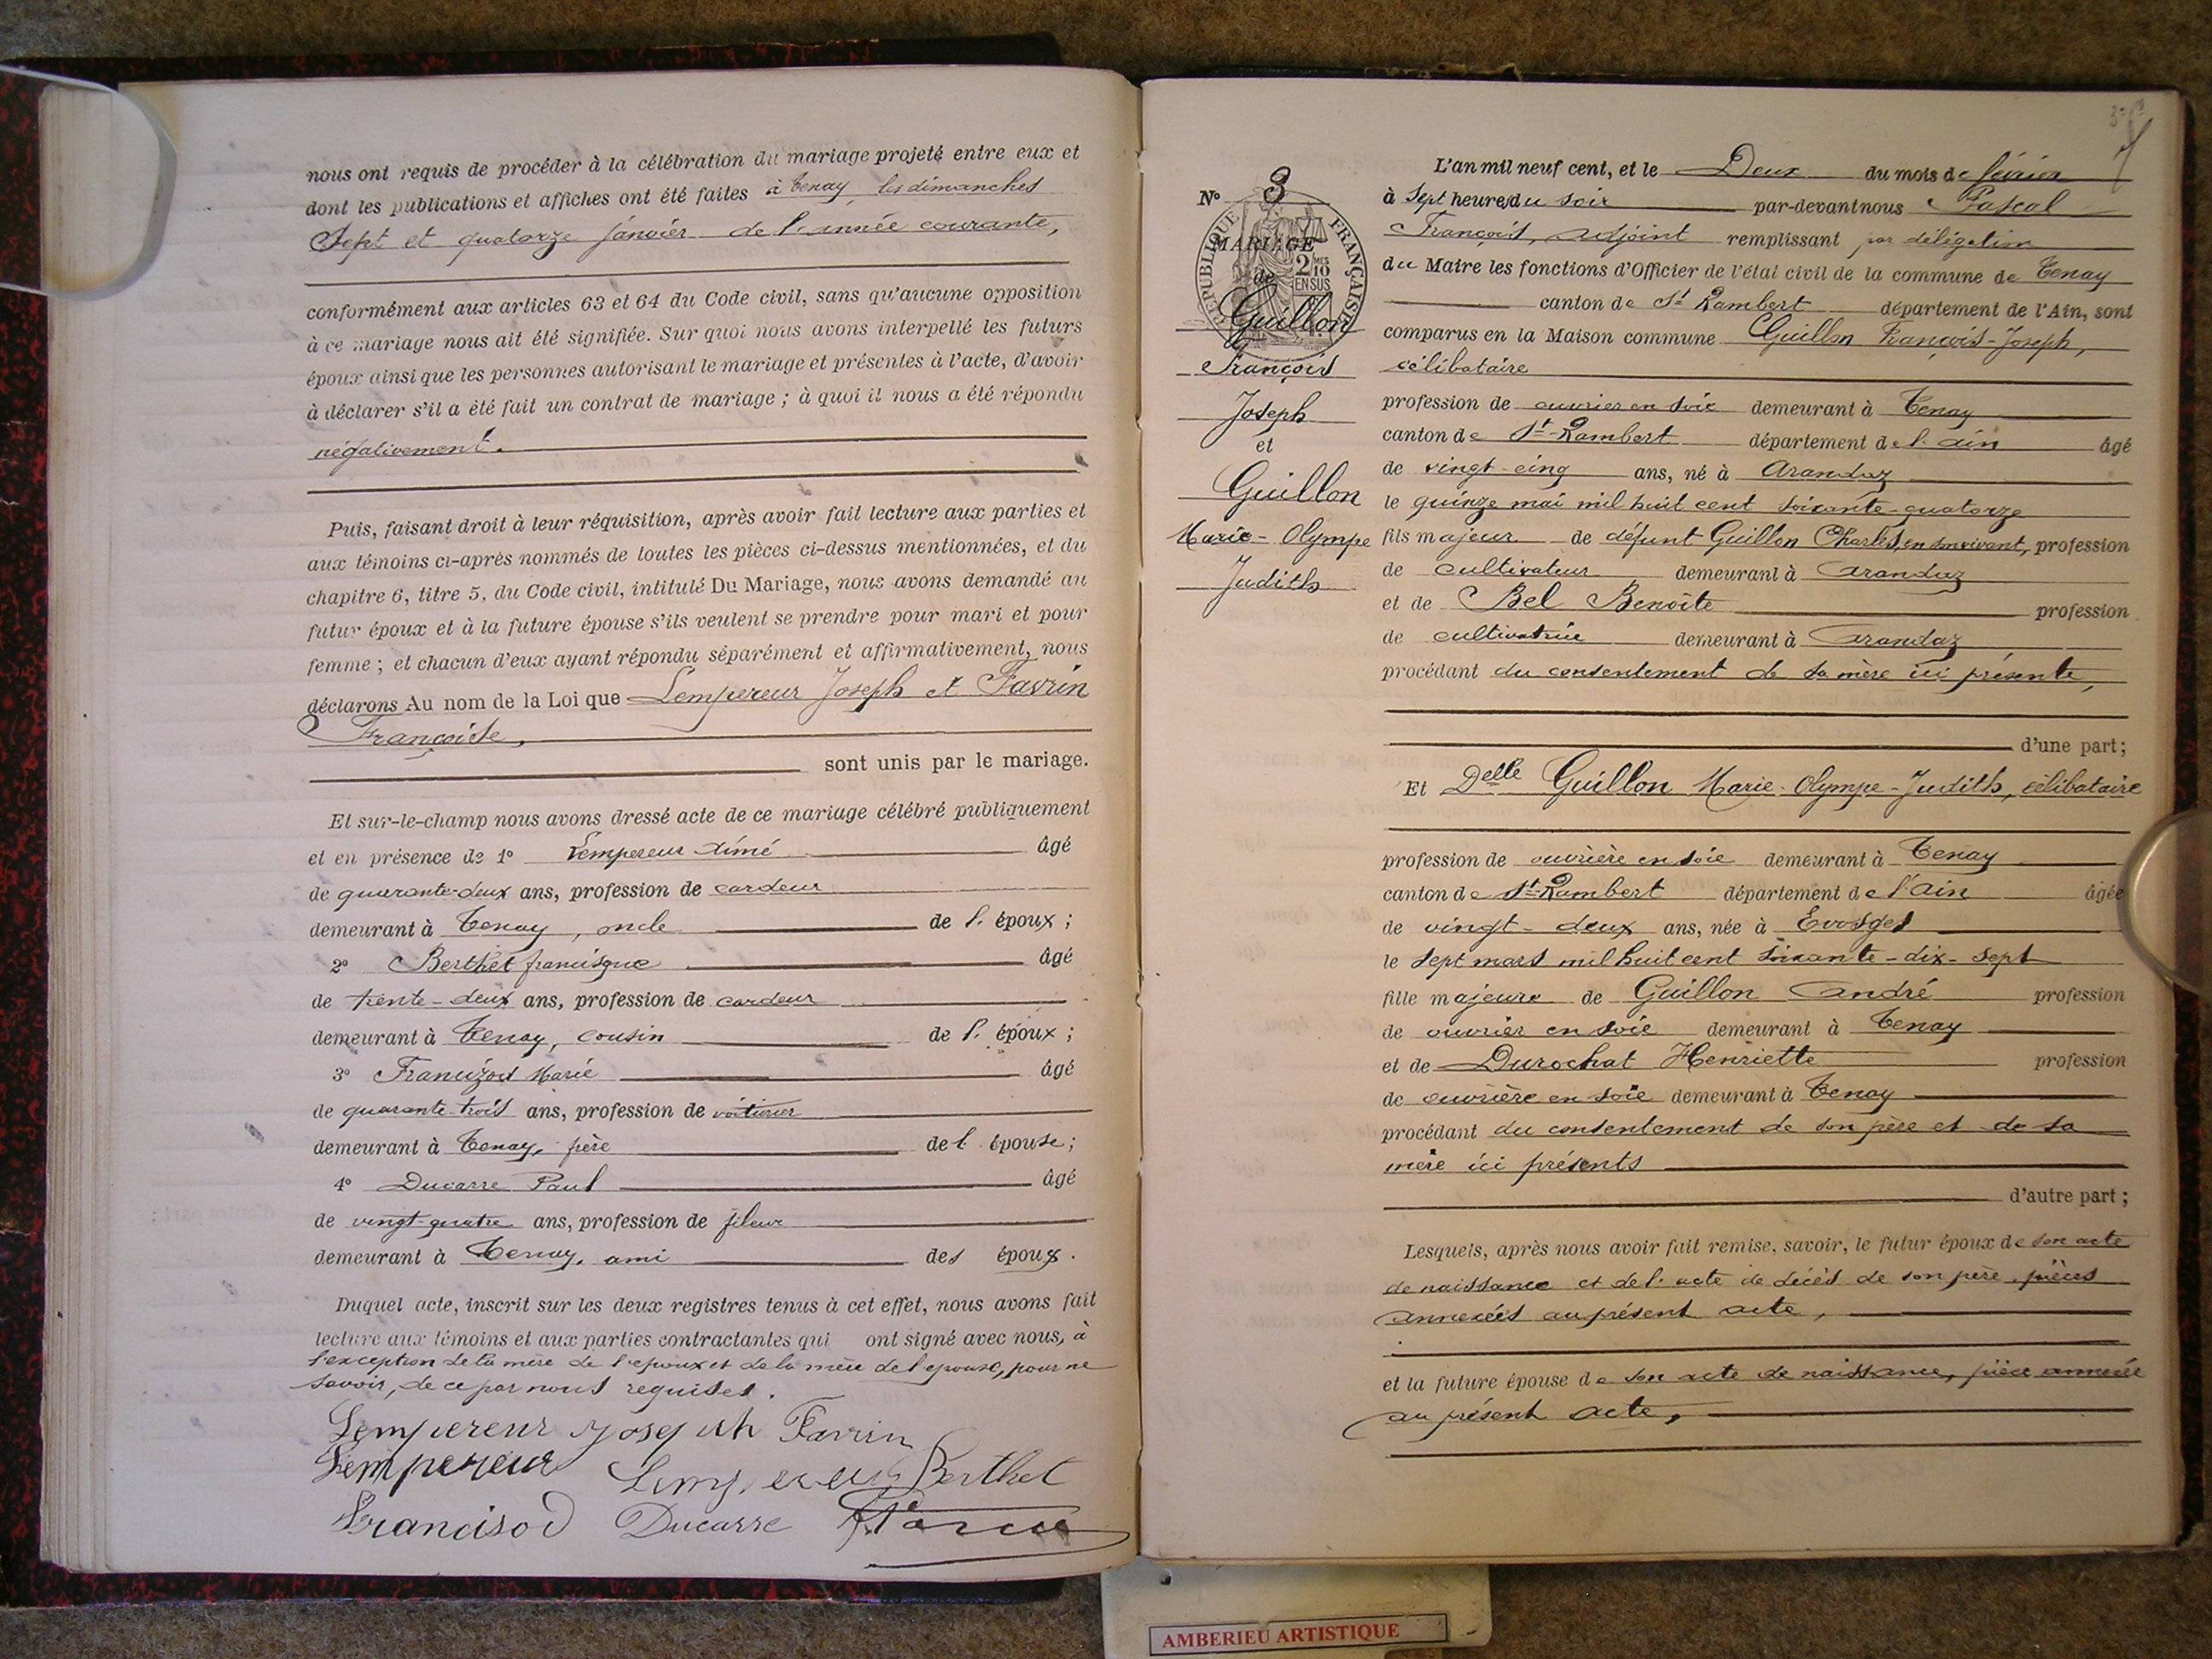 nous ont requis de procéder à la célébration du mariage projeté entre eux et
dont les publications et affiches ont été faites à Tenay, les dimanches
Sept et quatorze janvier de l'année courante,
conformément aux articles 63 et 64 du Code civil, sans qu'aucune opposition
à ce mariage nous ait été signifiée. Sur quoi nous avons interpellé les futurs
époux ainsi que les personnes autorisant le mariage et présentes à l'acte, d'avoir
à déclarer s'il a été fait un contrat de mariage ; à quoi il nous a été répondu
négativement.
Puis, faisant droit à leur réquisition, après avoir fait lecture aux parties et
aux témoins ci-après nommés de toutes les pièces ci-dessus mentionnées, et du
chapitre 6, titre 5, du Code civil, intitulé Du Mariage, nous avons demandé au
futur époux et à la future épouse s'ils veulent se prendre pour mari et pour
femme ; et chacun d'eux ayant répondu séparément et affirmativement, nous
déclarons Au nom de la Loi que Lempereur Joseph et Favrin
Françoise,
sont unis par le mariage.
Et sur-le-champ nous avons dressé acte de ce mariage célébré publiquement
et en présence de 1° Lempereur Aimé âgé
de quarante-deux ans, profession de cardeur
demeurant à Tenay, oncle de l. époux ;
2° Berthet francisque âgé
de trente-deux ans, profession de cardeur
demeurant à Tenay, cousin de l. époux ;
3° Francizod Marie âgé
de quarante-trois ans, profession de voiturier
demeurant à Tenay, père de l. épouse ;
4° Ducarre Paul âgé
de vingt-quatre ans, profession de fileur
demeurant à Tenay, ami des époux.
Duquel acte, inscrit sur les deux registres tenus à cet effet, nous avons fait
lecture aux témoins et aux parties contractantes qui ont signé avec nous, à
l'exception de la mère de l'époux et de la mère de l'épouse, pour ne
savoir, de ce par nous requises.
Lempereur Joseph Favrin
Lempereur Lempereur Berthet
Francisod Ducarre
N° 3
RÉPUBLIQUE FRANÇAISE
2 MES 10 EN SUS
MARIAGE
de
Guillon
François
Joseph
et
Guillon
Marie-Olympe
Judith
L'an mil neuf cent, et le Deux du mois de février
à Sept heures du soir par-devant nous Pascal
François, adjoint remplissant par délégation
du Maire les fonctions d'Officier de l'état civil de la commune de Tenay
canton de St Rambert département de l'Ain, sont
comparus en la Maison commune Guillon François-Joseph,
célibataire
profession de ouvrier en soie demeurant à Tenay
canton de St-Rambert département de l'ain âgé
de vingt-cinq ans, né à Arandaz
le quinze mai mil huit cent soixante-quatorze
fils majeur de défunt Guillon Charles, en son vivant, profession
de cultivateur demeurant à Arandaz
et de Bel Benoîte profession
de cultivatrice demeurant à Arandaz
procédant du consentement de sa mère ici présente,
d'une part ;
Et Delle Guillon Marie-Olympe-Judith, célibataire
profession de ouvrière en soie demeurant à Tenay
canton de St-Rambert département de l'Ain âgée
de vingt-deux ans, née à Evosges
le sept mars mil huit cent soixante-dix-sept
fille majeure de Guillon André profession
de ouvrier en soie demeurant à Tenay
et de Durochat Henriette profession
de ouvrière en soie demeurant à Tenay
procédant du consentement de son père et de sa
mère ici présents
d'autre part ;
Lesquels, après nous avoir fait remise, savoir, le futur époux de son acte
de naissance et de l. acte de décès de son père, pièces
annexées au présent acte,
et la future épouse de son acte de naissance, pièce annexée
au présent acte,
AMBERIEU ARTISTIQUE